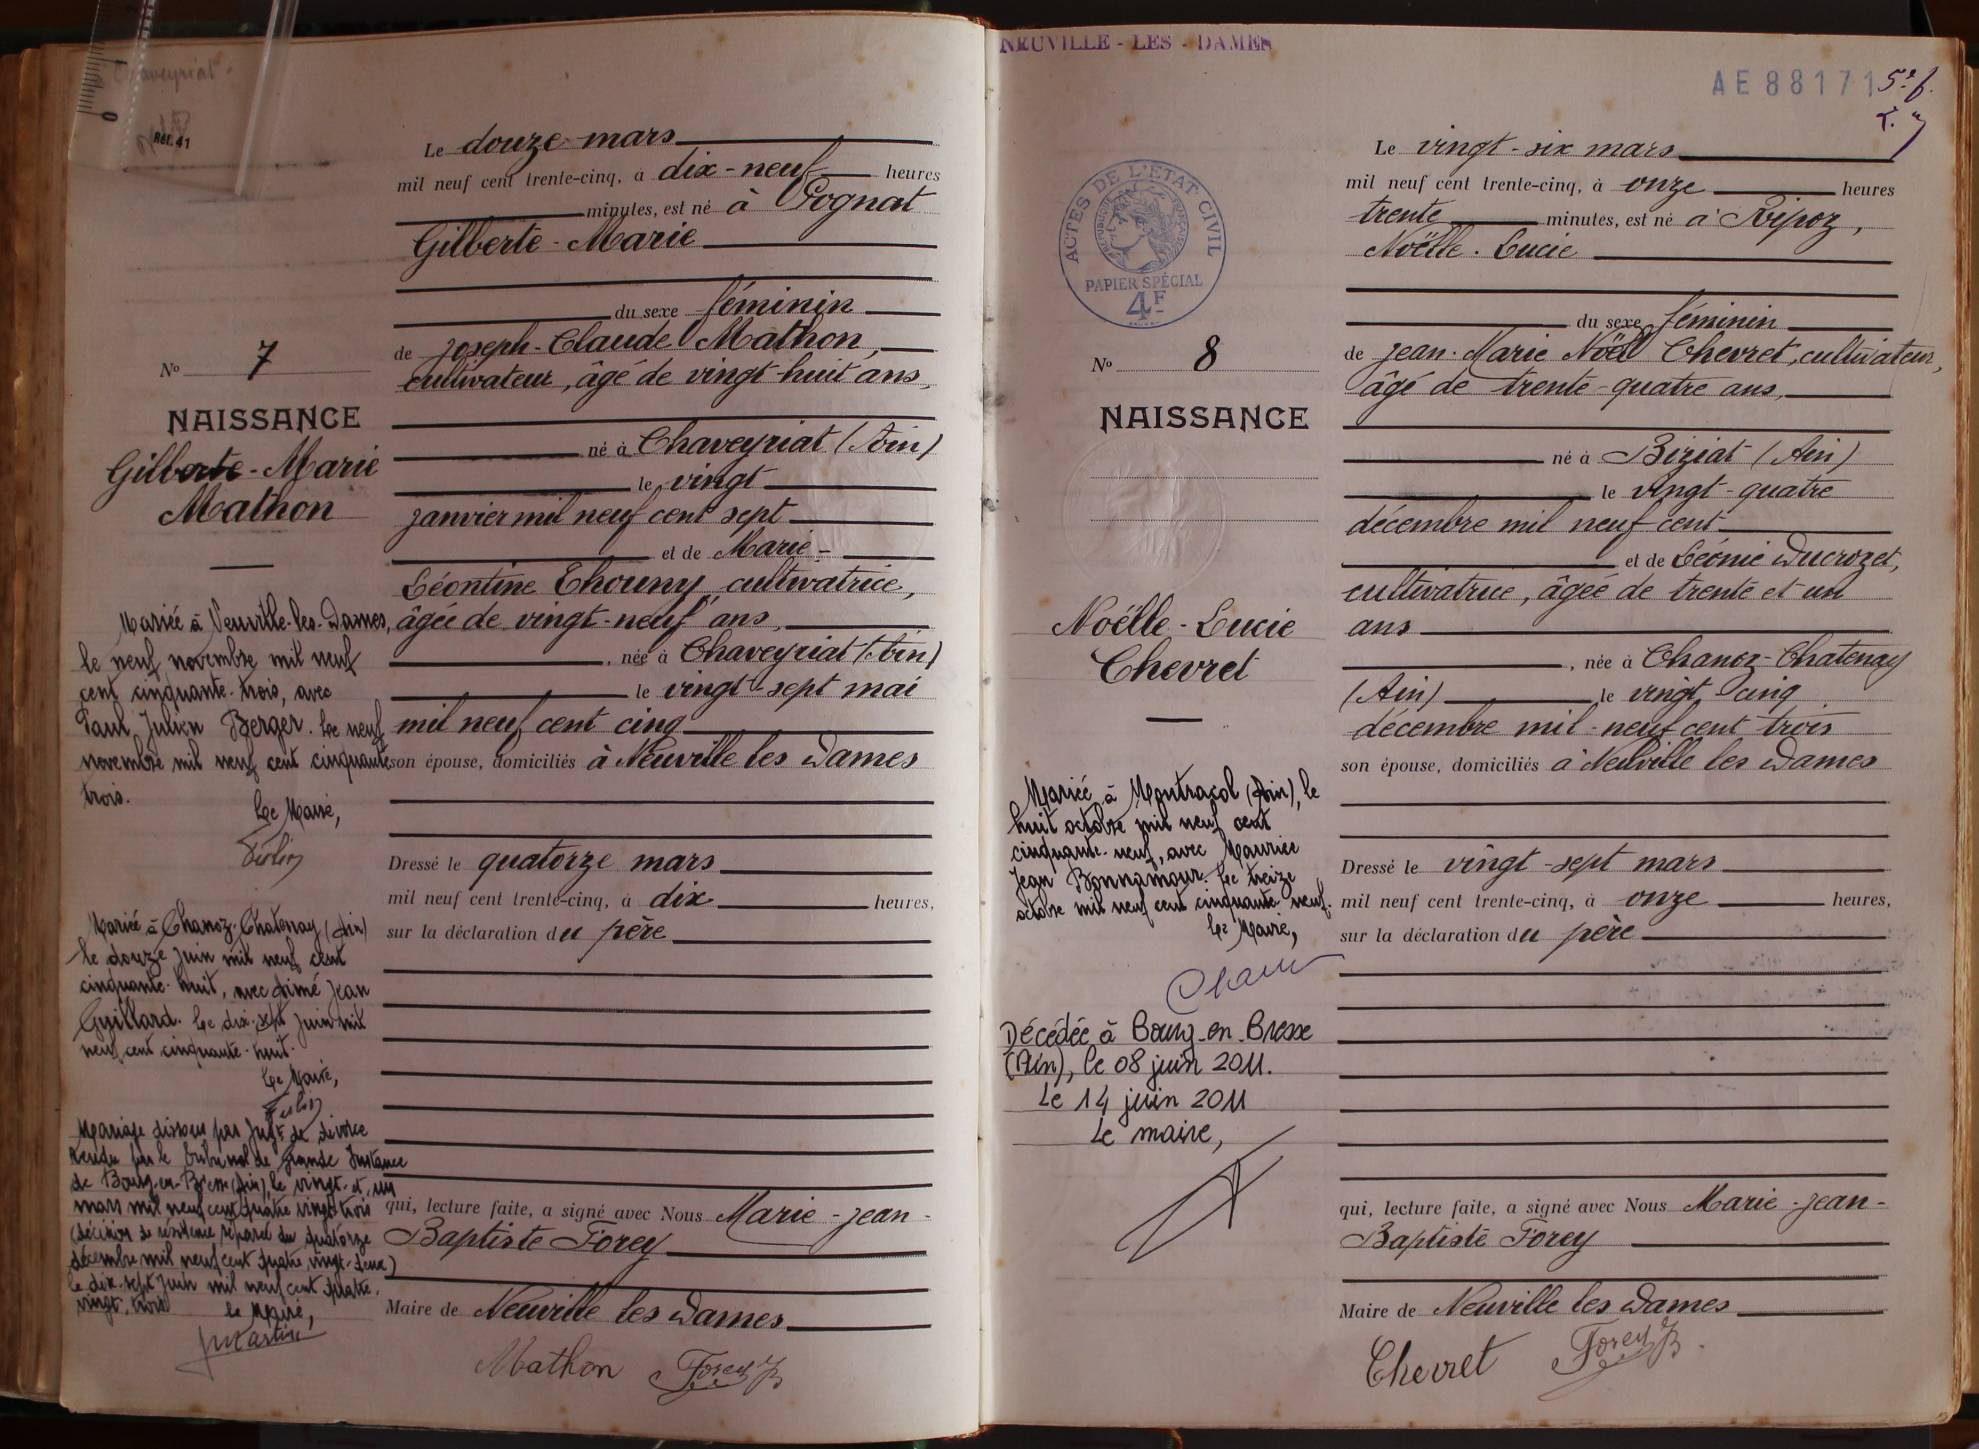 Chaveyriat
0
Réf. 41
Le douze mars
mil neuf cent trente-cinq, à dix-neuf heures
minutes, est né à Cognat
Gilberte-Marie
du sexe féminin
de Joseph-Claude Mathon,
cultivateur, âgé de vingt huit ans,
né à Chaveyriat (Ain)
le vingt
janvier mil neuf cent sept
et de Marie-
Léontine Thouny cultivatrice,
âgée de vingt-neuf ans,
, née à Chaveyriat (Ain)
le vingt-sept mai
mil neuf cent cinq
son épouse, domiciliés à Neuville les Dames
Dressé le quatorze mars
mil neuf cent trente-cinq, à dix heures,
sur la déclaration du père
qui, lecture faite, a signé avec Nous Marie-Jean-
Baptiste Forey
Maire de Neuville les Dames
Mathon Forey JB
No 7
NAISSANCE
Gilberte-Marie
Mathon
Mariée à Neuville-les-Dames,
le neuf novembre mil neuf
cent cinquante-trois, avec
Paul Julien Berger. Le neuf
novembre mil neuf cent cinquante
trois.
Le Maire,
Mariée à Chanoz-Chatenay (Ain)
le douze juin mil neuf cent
cinquante-huit, avec Aimé Jean
Guillard. Le dix-sept juin mil
neuf cent cinquante-huit.
Le Maire,
Mariage dissous par Jugt de divorce
rendu par le tribunal de Grande Instance
de Bourg-en-Bresse (Ain), le vingt-et-un
mars mil neuf cent quatre vingt trois
(décision de résidence séparée du quatorze
décembre mil neuf cent quatre vingt-deux)
le dix-sept juin mil neuf cent quatre-
vingt-trois
le Maire,
NEUVILLE-LES-DAMES
AE 88171
5e f.
ACTES DE L'ETAT CIVIL
REPUBLIQUE FRANÇAISE
PAPIER SPÉCIAL
4F
No 8
NAISSANCE
Noëlle-Lucie
Chevret
Mariée à Montracol (Ain), le
huit octobre mil neuf cent
cinquante-neuf, avec Maurice
Jean Bonnamour. Le treize
octobre mil neuf cent cinquante neuf.
Le Maire,
Décédée à Bourg-en-Bresse
(Ain), le 08 juin 2011.
Le 14 juin 2011
Le maire,
Le vingt-six mars
mil neuf cent trente-cinq, à onze heures
trente minutes, est né à Ripoz,
Noëlle-Lucie
du sexe féminin
de Jean-Marie Noël Chevret, cultivateur,
âgé de trente-quatre ans,
né à Biziat (Ain)
le vingt-quatre
décembre mil neuf cent
et de Léonie Ducrozet,
cultivatrice, âgée de trente et un
ans
, née à Chanoz-Chatenay
(Ain) le vingt cinq
décembre mil-neuf cent trois
son épouse, domiciliés à Neuville les Dames
Dressé le vingt-sept mars
mil neuf cent trente-cinq, à onze heures,
sur la déclaration du père
qui, lecture faite, a signé avec Nous Marie-Jean-
Baptiste Forey
Maire de Neuville les Dames
Chevret Forey JB.